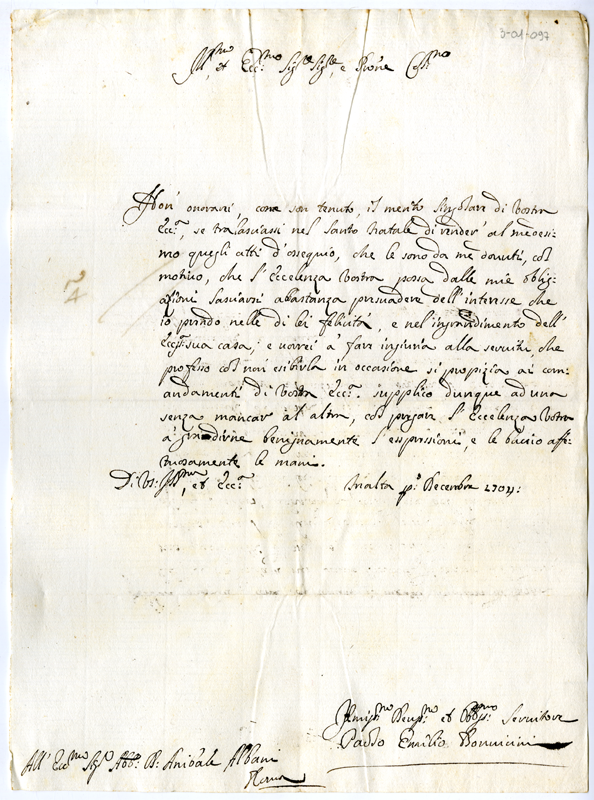 3-01-097
Ill.mo et Ecc.mo Sig.re Sig.re, e Prône Coll.mo
Non onorarei come son tenuto, il merito singolare di Vostra
Ecc.a, se tralasciassi nel Santo Natale di render' al medesi-
mo quegli atti d'ossequio, che le sono da me dovuti, col
motivo, che l'Eccelenza Vostra possa dalle mie oblig-
azioni lasciarsi abastanza persuadere dell'interesse che
io prendo nelle di lei felicità, e nel'ingrandimento dell'
Ecc.ma sua casa; e vorrei à far ingiuria alla servitù, che
professo col non esibirla in occasione si propizia ai com-
andamenti di Vostra Ecc.a. supplico dunque ad una
senza mancar al altra, col pregar l'Eccelenza Vostra
à gradirne benignamente l'espressioni, e le bacio affe-
tuosamente le mani.
Di V.s: Ill.ma, et Ecc.a Malta p.o Decembre 1704:
Humiss.mo Devss.mo et Obbs.mo Servitore
Paolo Emilio Bonvicini
All' Ecc.mo Sig.re Abb: D: Anibale Albani
Roma